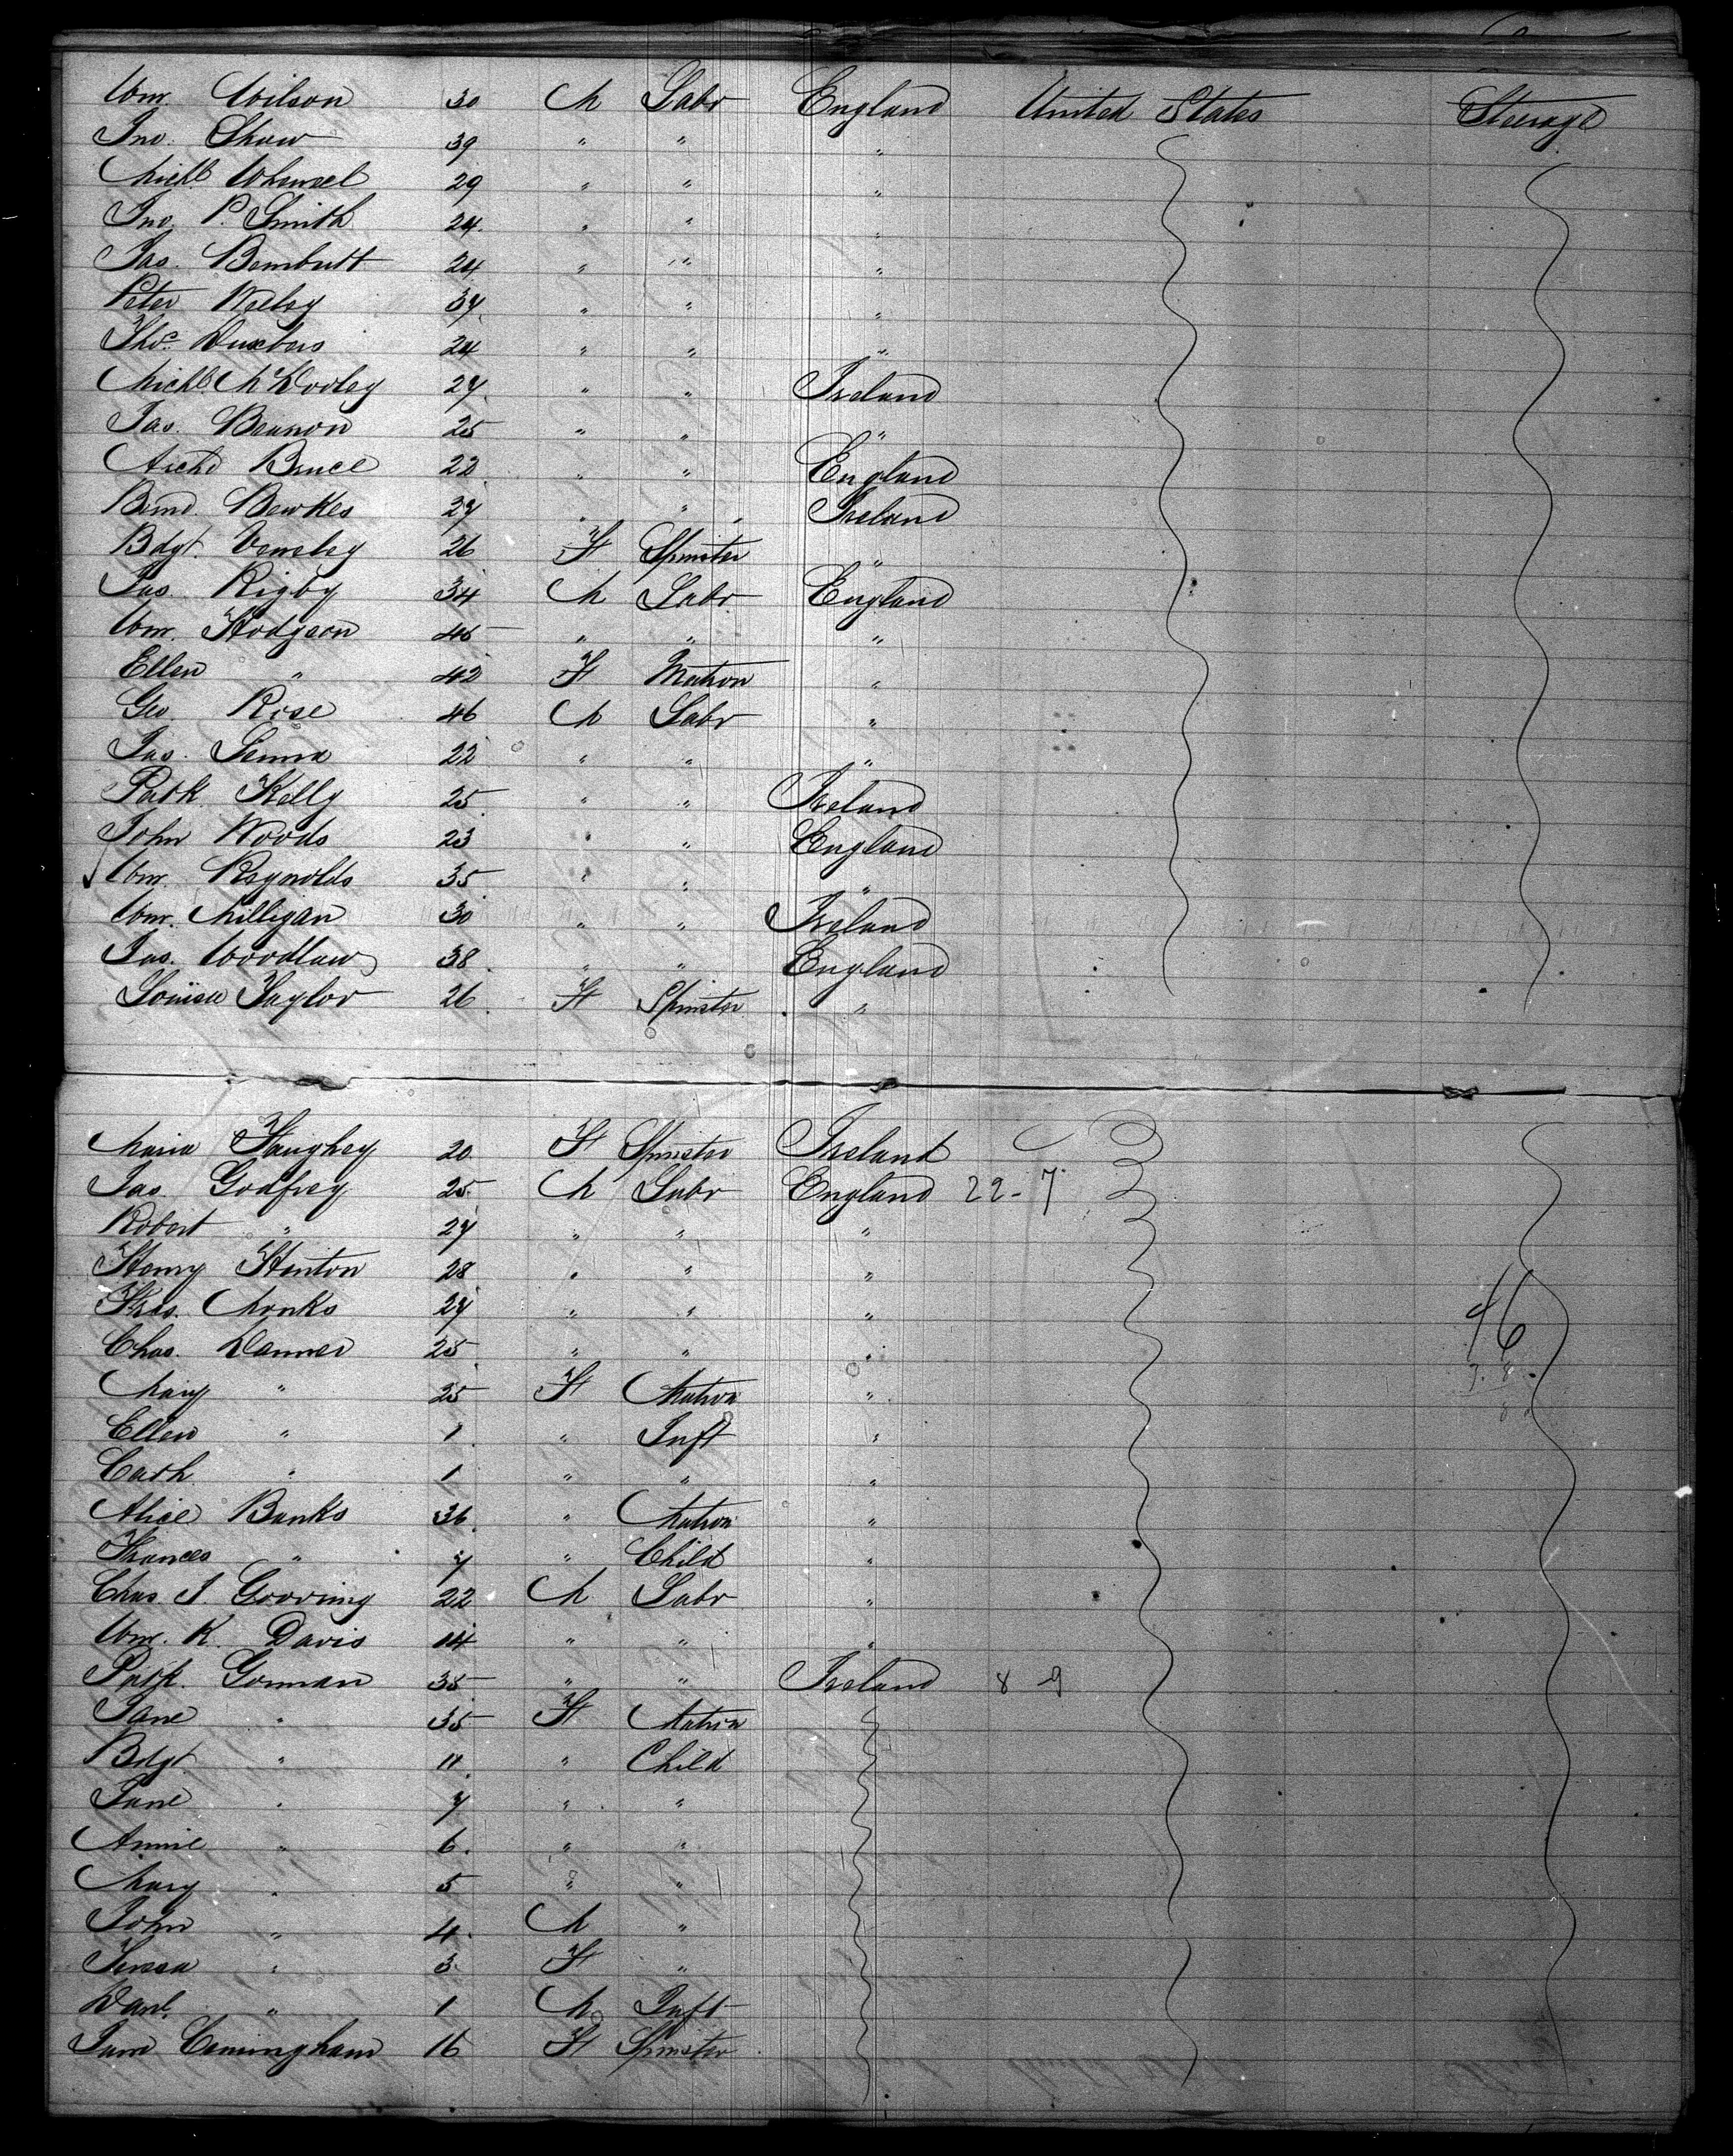 Wm. Wilson 30 M Labr England United States Steerage
Jno. Shaw 39 " " "
Michl. 29 " " "
Jno. P. Smith 24 " " "
Jas. 24 " " "
Peter 37 " " "
Thos. 24 " " "
Michl. McDooley 27 " " Ireland
Jas. 25 " " "
Archd Bruce 22 " " England
Bernd. Bewkes 27 " " Ireland
Bdgt 26 F Spinster "
Jas. Rigby 34 M Labr England
Wm. Hodgson 45 " " "
Ellen " 42 F Matron "
Geo. Rose 46 M Labr "
Jas. 22 " " "
Patk. Kelly 25 " " Ireland
John Woods 23 " " England
Wm. Reynolds 35 " " "
Wm. Milligan 30 " " Ireland
Jas. Woodlaw 38 " " England
Louisa Taylor 26 F Spinster "
Maria Haughey 20 F Spinster Ireland
Jas. Godfrey 25 M Labr England 22-7
Robert " 27 " " "
Henry Hinton 28 " " "
Thos. Monks 27 " " "
46
Chas. 25 " " "
Mary " 25 F Matron "
Ellen " 1 " Inft "
Cath " 1 " " "
Alice Banks 36 " Matron "
Frances " 7 " Child "
Chas. J Gooring 22 M Labr "
Wm. K. Davis 14 " " "
Patk. Gorman 35 " " Ireland 8 9
Jane " 35 F Matron
Bdgt. " 11 " Child
Jane " 7 " "
Annie " 6 " "
Mary " 5 " "
John " 4 M "
Teresa " 3 F "
Danl. " 1 M Inft
Jane 16 F Spinster